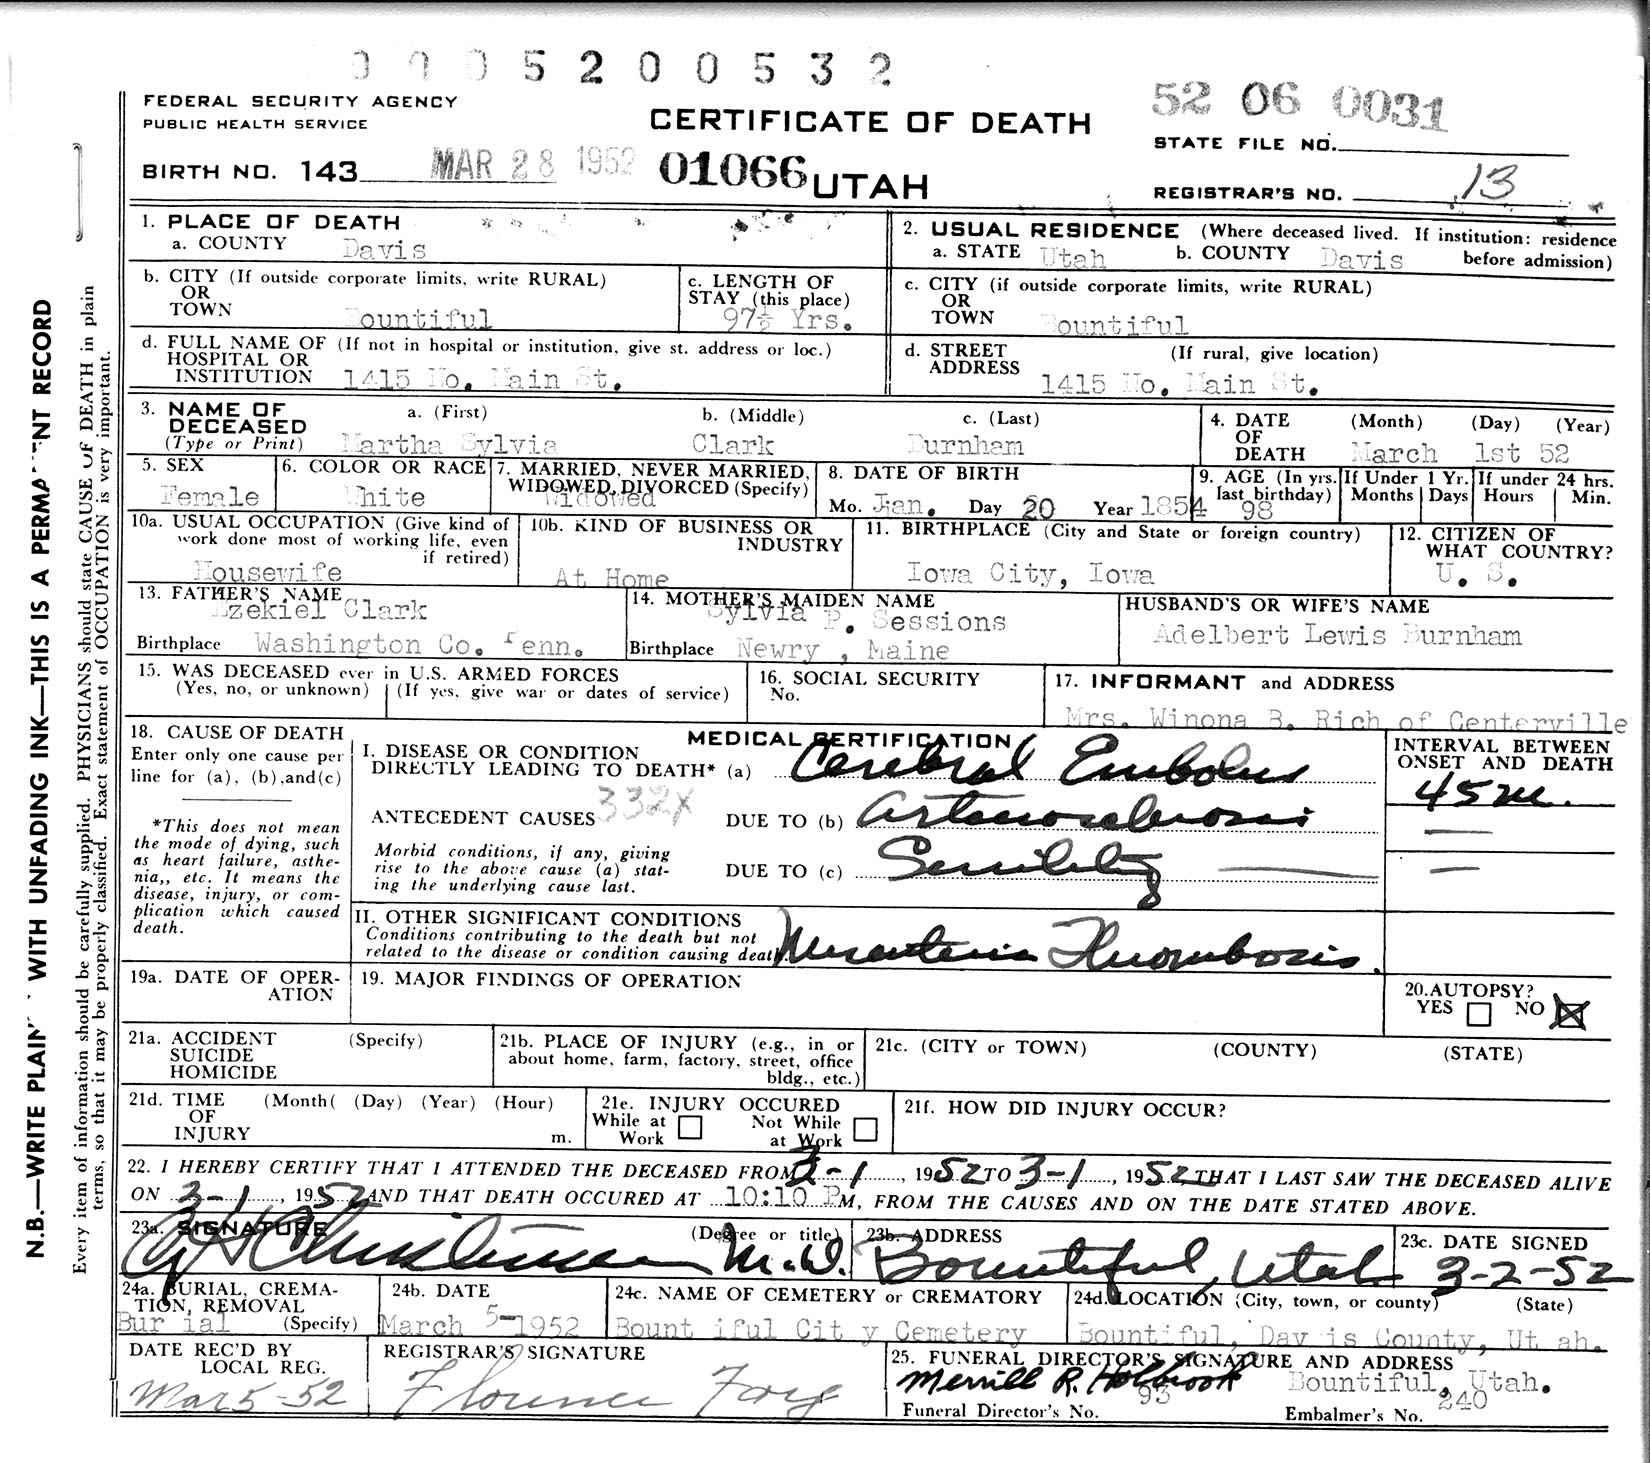 0005200532
FEDERAL SECURITY AGENCY
PUBLIC HEALTH SERVICE
CERTIFICATE OF DEATH
52 06 0031
STATE FILE NO.
BIRTH NO. 143 MAR 28 1952 01066 UTAH
REGISTRAR'S NO. 13
1. PLACE OF DEATH
a. COUNTY Davis
2. USUAL RESIDENCE (Where deceased lived. If institution: residence before admission)
a. STATE Utah b. COUNTY Davis
b. CITY (If outside corporate limits, write RURAL)
OR
TOWN Bountiful
c. LENGTH OF
STAY (this place)
97½ Yrs.
c. CITY (if outside corporate limits, write RURAL)
OR
TOWN Bountiful
d. FULL NAME OF (If not in hospital or institution, give st. address or loc.)
HOSPITAL OR
INSTITUTION 1415 No. Main St.
d. STREET (If rural, give location)
ADDRESS
1415 No. Main St.
3. NAME OF a. (First) b. (Middle) c. (Last)
DECEASED
(Type or Print) Martha Sylvia Clark Burnham
4. DATE (Month) (Day) (Year)
OF
DEATH March 1st 52
5. SEX
Female
6. COLOR OR RACE
White
7. MARRIED, NEVER MARRIED,
WIDOWED, DIVORCED (Specify)
Widowed
8. DATE OF BIRTH
Mo. Jan. Day 20 Year 1854
9. AGE (In yrs.
last birthday)
98
If Under 1 Yr.
Months Days
If under 24 hrs.
Hours Min.
10a. USUAL OCCUPATION (Give kind of
work done most of working life, even
if retired)
Housewife
10b. KIND OF BUSINESS OR
INDUSTRY
At Home
11. BIRTHPLACE (City and State or foreign country)
Iowa City, Iowa
12. CITIZEN OF
WHAT COUNTRY?
U. S.
13. FATHER'S NAME
Ezekiel Clark
Birthplace Washington Co. Penn.
14. MOTHER'S MAIDEN NAME
Sylvia P. Sessions
Birthplace Newry , Maine
HUSBAND'S OR WIFE'S NAME
Adelbert Lewis Burnham
15. WAS DECEASED ever in U.S. ARMED FORCES
(Yes, no, or unknown) (If yes, give war or dates of service)
16. SOCIAL SECURITY
No.
17. INFORMANT and ADDRESS
Mrs. Winona B. Rich of Centerville
18. CAUSE OF DEATH
Enter only one cause per
line for (a), (b), and (c)
*This does not mean
the mode of dying, such
as heart failure, asthe-
nia,, etc. It means the
disease, injury, or com-
plication which caused
death.
MEDICAL CERTIFICATION
I. DISEASE OR CONDITION
DIRECTLY LEADING TO DEATH* (a) Cerebral Embolus
332X
ANTECEDENT CAUSES DUE TO (b) Arteriosclerosis
Morbid conditions, if any, giving
rise to the above cause (a) stat-
ing the underlying cause last.
DUE TO (c) Senility
II. OTHER SIGNIFICANT CONDITIONS
Conditions contributing to the death but not
related to the disease or condition causing death. Mesenteric Thrombosis.
INTERVAL BETWEEN
ONSET AND DEATH
45 m.
19a. DATE OF OPER-
ATION
19. MAJOR FINDINGS OF OPERATION
20. AUTOPSY?
YES NO
21a. ACCIDENT (Specify)
SUICIDE
HOMICIDE
21b. PLACE OF INJURY (e.g., in or
about home, farm, factory, street, office
bldg., etc.)
21c. (CITY or TOWN) (COUNTY) (STATE)
21d. TIME (Month( (Day) (Year) (Hour)
OF
INJURY m.
21e. INJURY OCCURED
While at Work Not While at Work
21f. HOW DID INJURY OCCUR?
22. I HEREBY CERTIFY THAT I ATTENDED THE DECEASED FROM 3-1, 1952 TO 3-1, 1952 THAT I LAST SAW THE DECEASED ALIVE
ON 3-1, 1952 AND THAT DEATH OCCURED AT 10:10 PM, FROM THE CAUSES AND ON THE DATE STATED ABOVE.
23a. SIGNATURE (Degree or title)
Christensen M.D.
23b. ADDRESS
Bountiful, Utah
23c. DATE SIGNED
3-2-52
24a. BURIAL, CREMA-
TION, REMOVAL
(Specify)
Burial
24b. DATE
March 5-1952
24c. NAME OF CEMETERY or CREMATORY
Bountiful City Cemetery
24d. LOCATION (City, town, or county) (State)
Bountiful, Davis County, Utah.
DATE REC'D BY
LOCAL REG.
Mar 5-52
REGISTRAR'S SIGNATURE
Florence
25. FUNERAL DIRECTOR'S SIGNATURE AND ADDRESS
Merrill R. Holbrook Bountiful, Utah.
Funeral Director's No. 93
Embalmer's No. 240
N.B.—WRITE PLAIN WITH UNFADING INK—THIS IS A PERMA NT RECORD
Every item of information should be carefully supplied. PHYSICIANS should state CAUSE OF DEATH in plain
terms, so that it may be properly classified. Exact statement of OCCUPATION is very important.